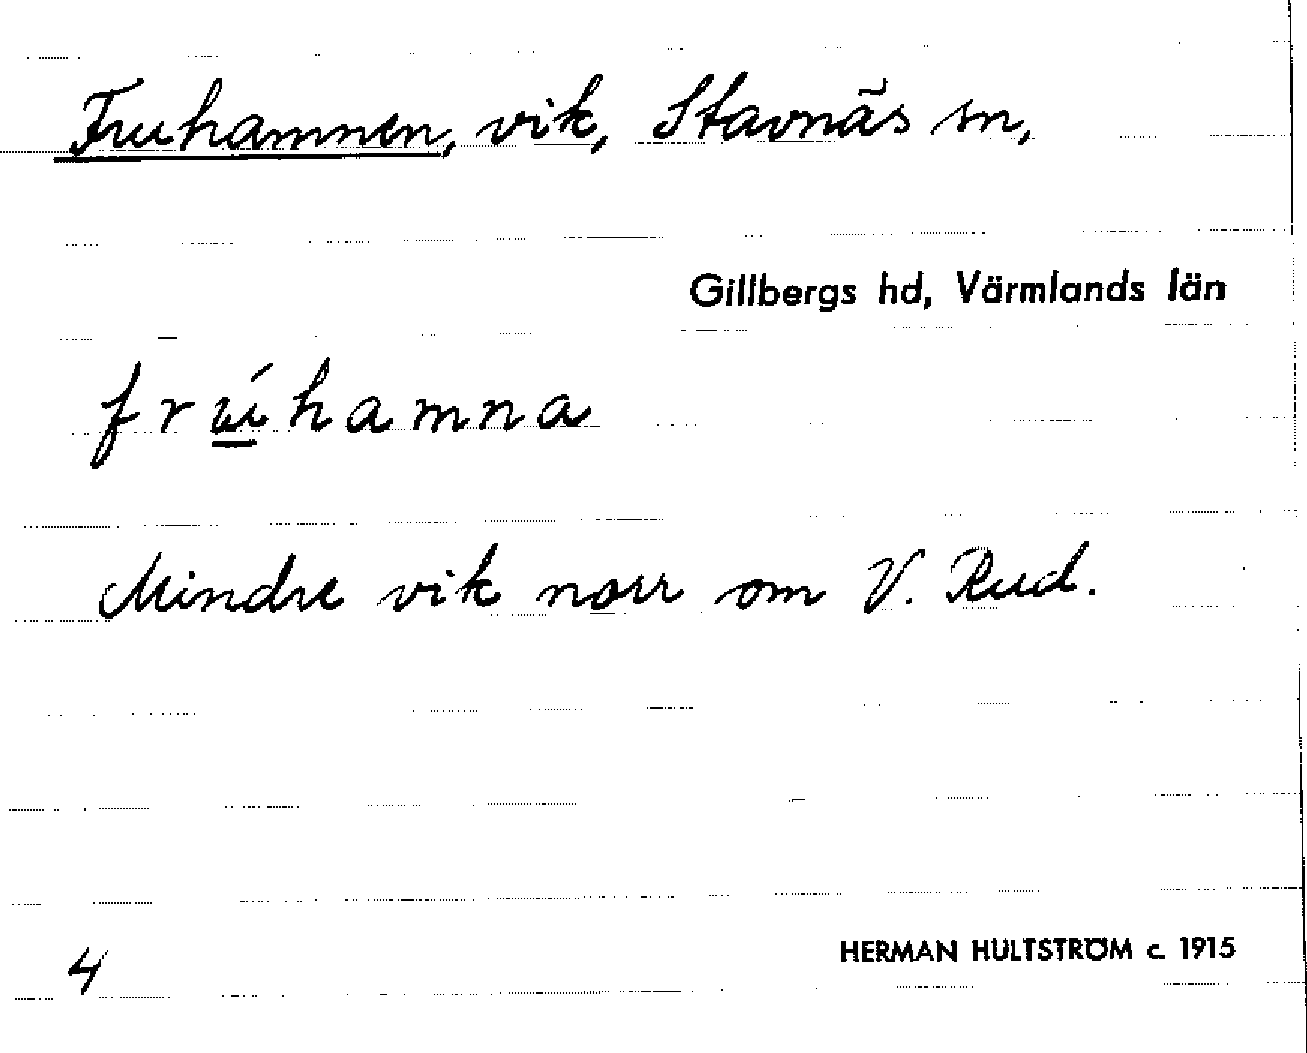 Fruhamnen, vik, Stavnäs sn,
Gillbergs hd, Värmlands län
frúhamna
Mindre vik norr om V. Rud.
4
HERMAN HULTSTRÖM c. 1915